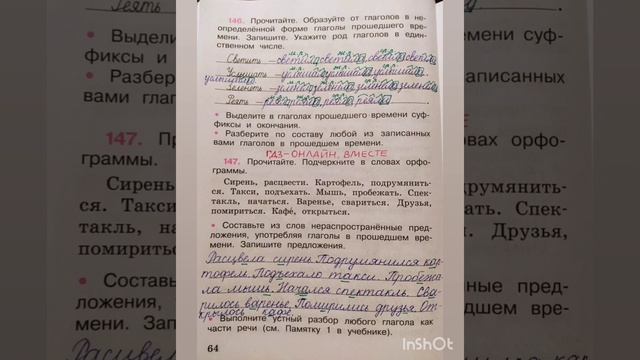 146. Прочитайте. Образуйте от глаголов в не-
определённой форме глаголы прошедшего вре-
мени. Запишите. Укажите род глаголов в един-
ственном числе.
Светить —
Услышать —
Зеленеть —
Реять —
• Выделите в глаголах прошедшего времени суф-
фиксы и окончания.
• Разберите по составу любой из записанных
вами глаголов в прошедшем времени.
ГДЗ-ОНЛАЙН, ВМЕСТЕ
147. Прочитайте. Подчеркните в словах орфо-
граммы.
Сирень, расцвести. Картофель, подрумянить-
ся. Такси, подъехать. Мышь, пробежать. Спек-
такль, начаться. Варенье, свариться. Друзья,
помириться. Кафе, открыться.
• Составьте из слов нераспространённые пред-
ложения, употребляя глаголы в прошедшем вре-
мени. Запишите предложения.
Расцвела сирень. Подрумянился кар-
тофель. Подъехало такси. Пробежа-
ла мышь. Начался спектакль. Сва-
рилось варенье. Помирились друзья. От-
крылось кафе.
• Выполните устный разбор любого глагола как
части речи (см. Памятку 1 в учебнике).
64
InShOt